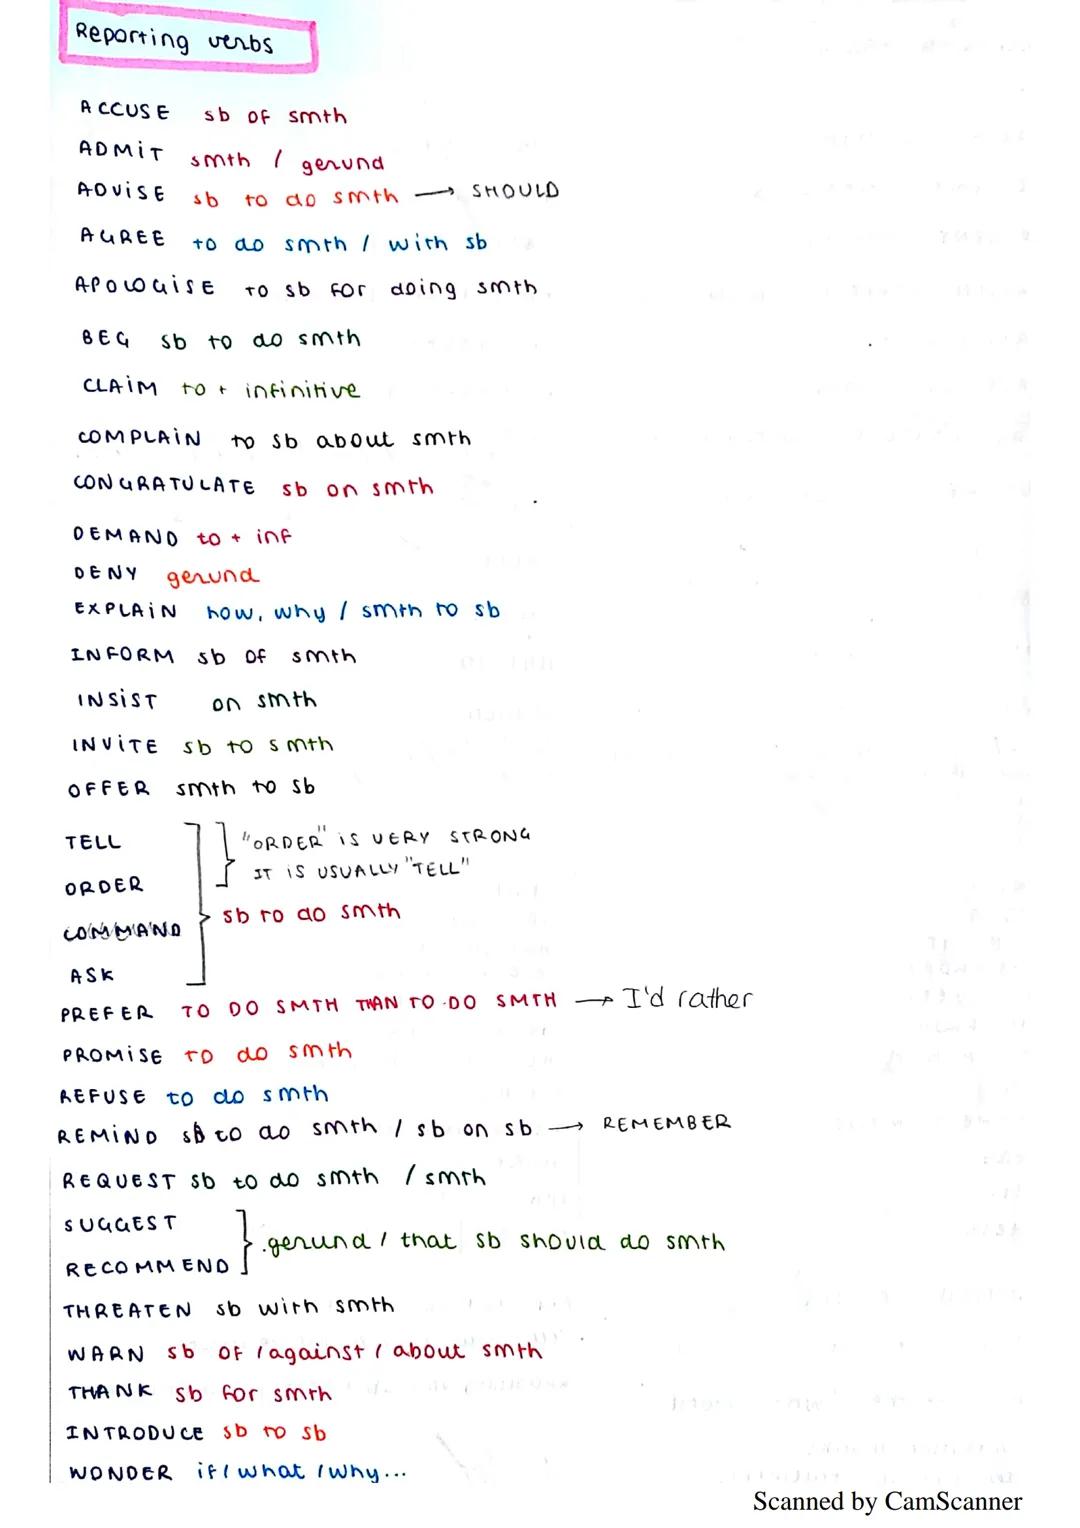 Reporting verbs
ACCUSE sb of smth
ADMIT smth / gerund
ADVISE sb to do smth → SHOULD
AGREE to do smth / with sb
APOLOGISE to sb for doing smth
BEG sb to do smth
CLAIM to + infinitive
COMPLAIN to sb about smth
CONGRATULATE sb on smth
DEMAND to + inf
DENY gerund
EXPLAIN how, why / smth to sb
INFORM sb of smth
INSIST on smth
INVITE sb to smth
OFFER smth to sb
TELL
"ORDER" IS VERY STRONG
IT IS USUALLY "TELL"
ORDER
sb to do smth
COMMAND
ASK
PREFER TO DO SMTH THAN TO DO SMTH → I'd rather
PROMISE TO do smth
REFUSE to do smth
REMIND sb to do smth / sb on sb → REMEMBER
REQUEST sb to do smth / smth
SUGGEST
gerund / that sb should do smth
RECOMMEND
THREATEN sb with smth
WARN sb of / against / about smth
THANK sb for smth
INTRODUCE sb to sb
WONDER if / what / why...
Scanned by CamScanner